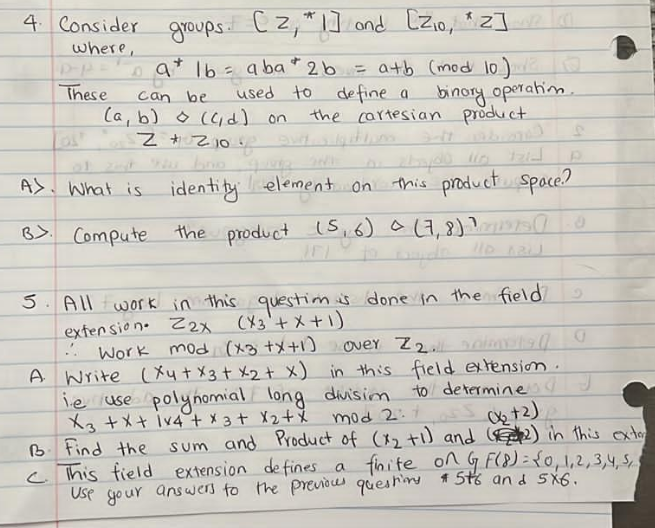 4. Consider groups. [Z, *1] and [Z10, *2]
where,
a* 1b = aba* 2b = a+b (mod 10)
These can be used to define a binary operation.
(a, b) ◇ (c,d) on the cartesian product
Z * Z10.
A>. What is identity element on this product space?
B>. Compute the product (5,6) ◇ (7,8)?
5. All work in this question is done in the field
extension. Z2x (x3 + x + 1)
∴ Work mod (x3 + x+1) over Z2.
A Write (x4 + x3 + x2 + x) in this field extension.
i.e use polynomial long division to determine
x3 + x + 1v4 + x3 + x2+x mod 2:
B. Find the sum and Product of (x2 +1) and (x2+2) in this exte
C. This field extension defines a finite on GF(8) = {0,1,2,3,4,5,
Use your answers to the previous questions * 5+6 and 5x6.